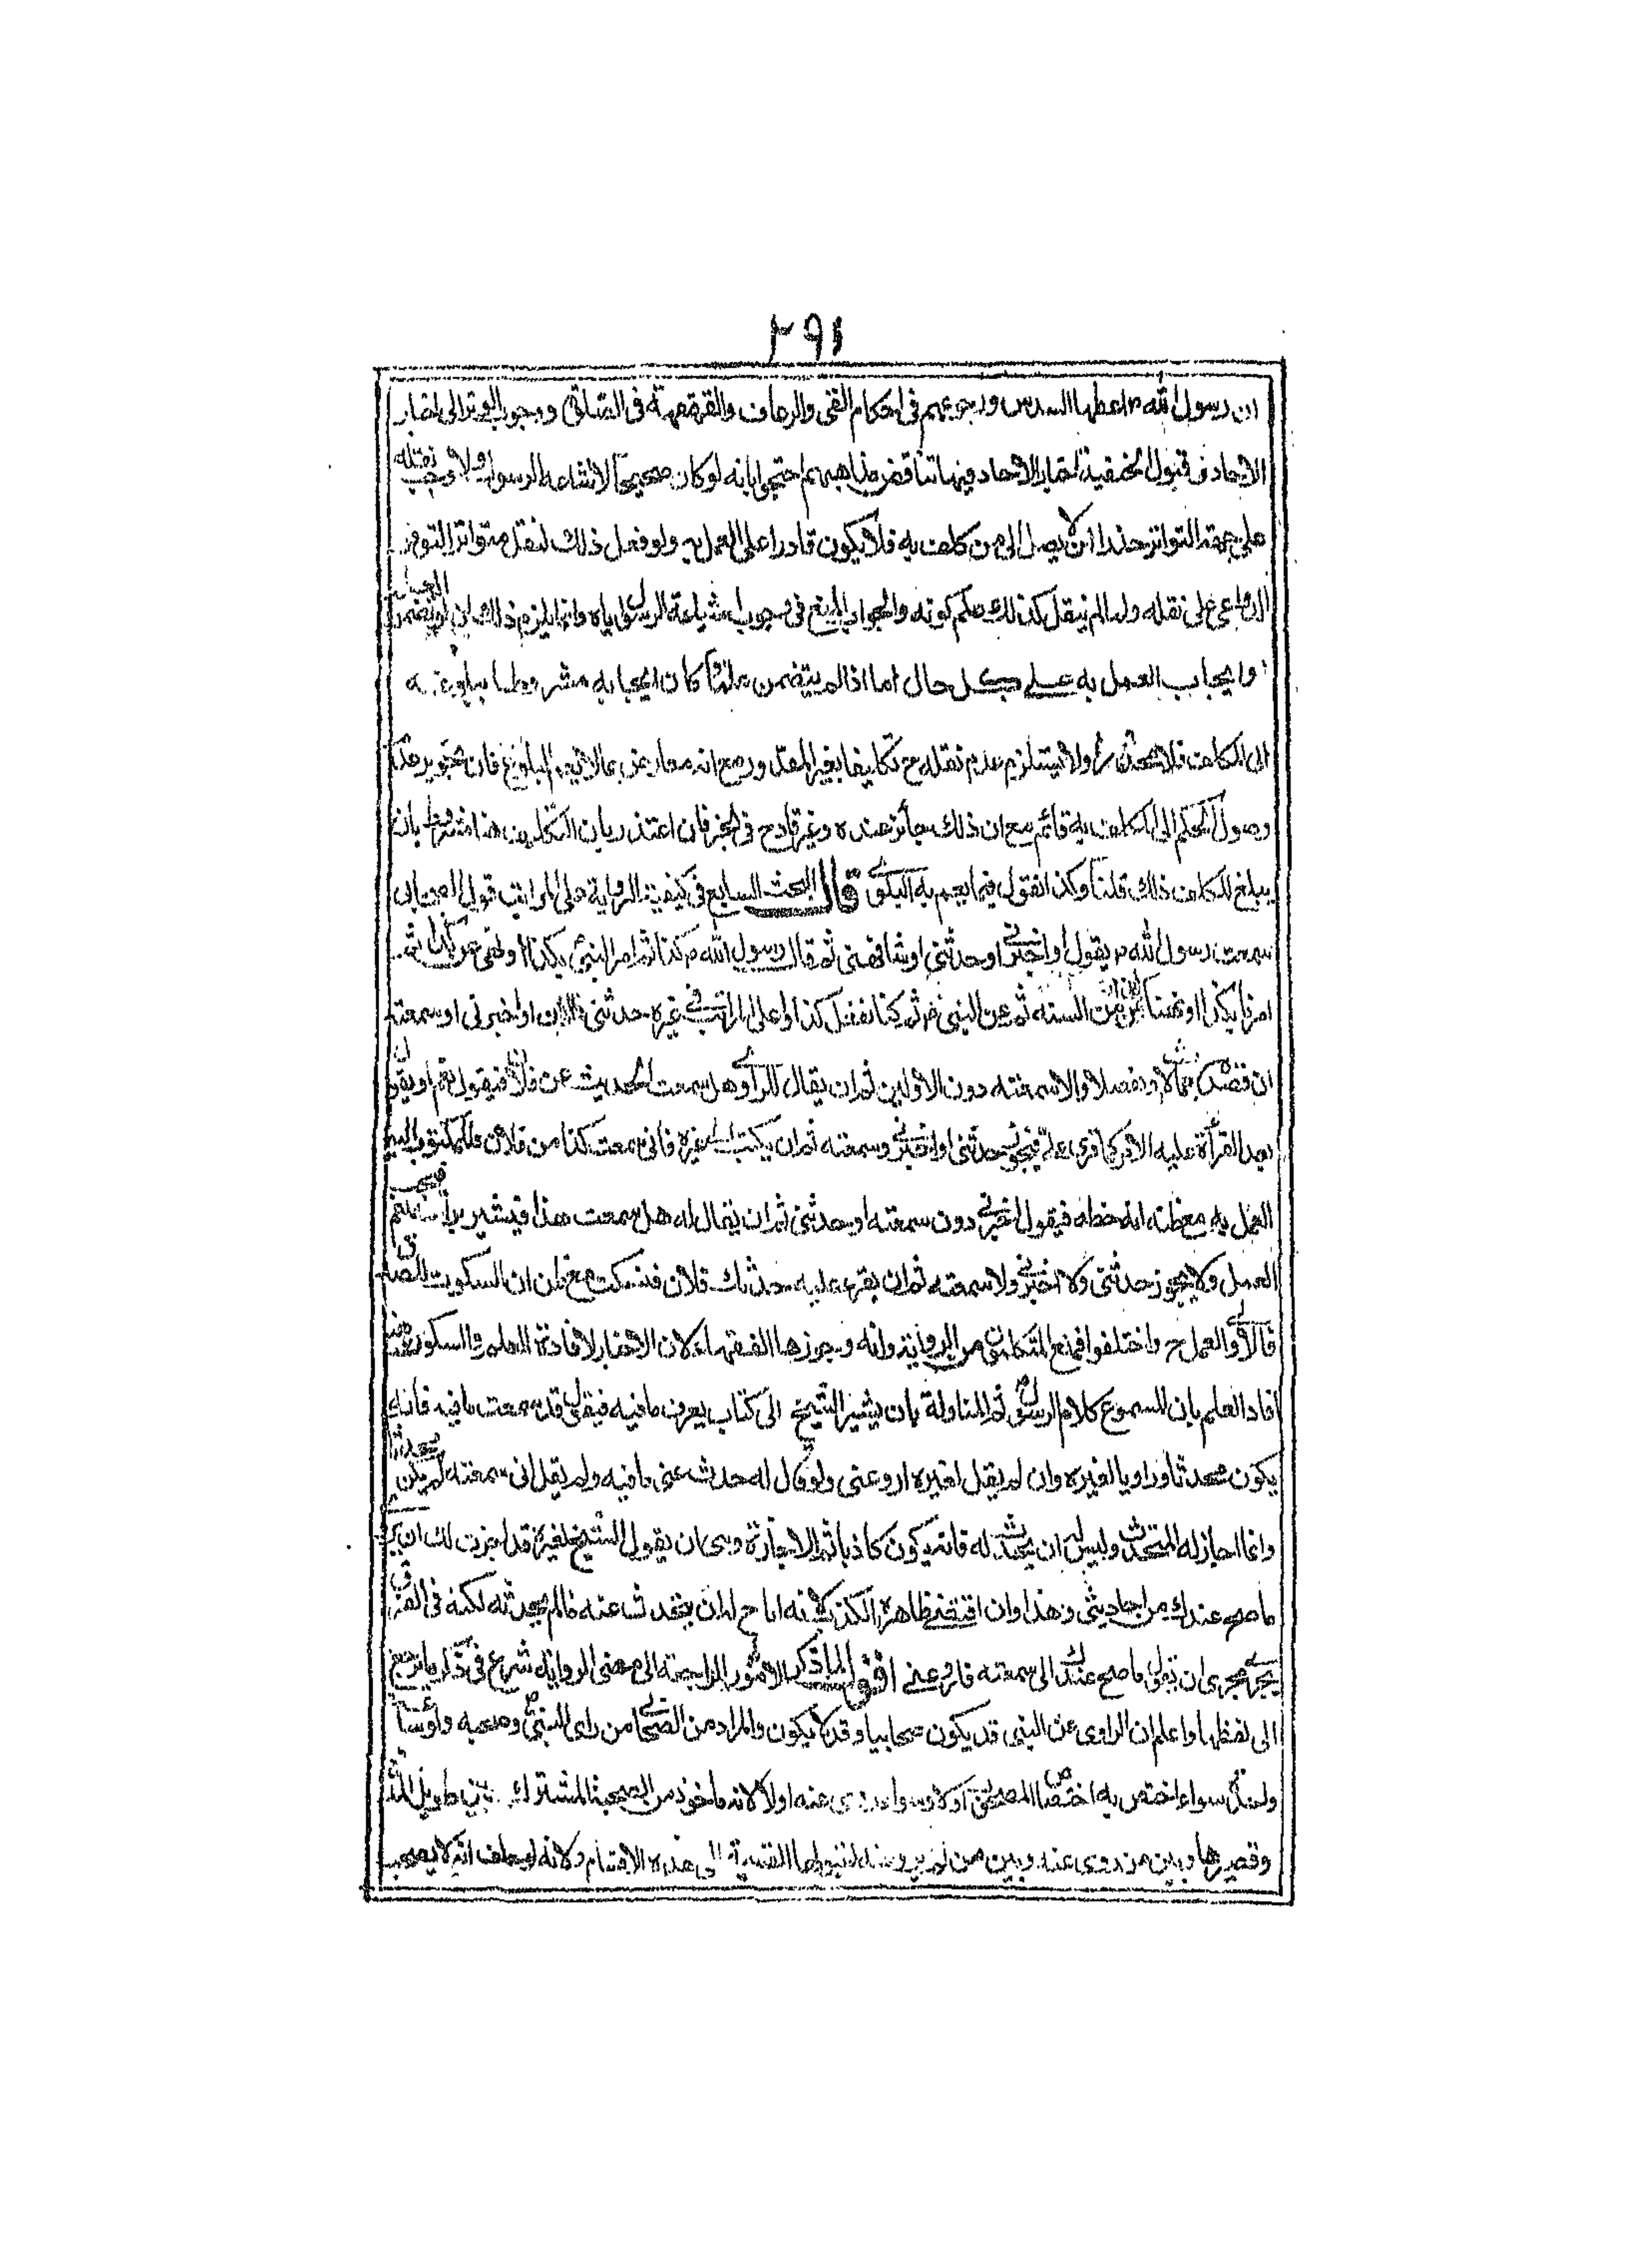 ٢٩١
ان رسول الله ص اعطاها السدس ورجوعهم فى احكام القئ والرعاف والقهقهة فى الصلوة ووجوب الوتر الى اخبار
الاحاد فقبول الحنفية اخبار الاحاد فيها تناقض مذاهبهم احتجوا بانه لو كان صحيحا لاشاعه الرسول ولاوجب نقله
على جهة التواتر حذرا ان لا يصل الى من كلف به فلا يكون قادرا على العمل به ولو فعل ذلك لنقل متواترا لتوفر
الدواعى على نقله ولما لم ينقل كذلك علم كونه والجواب المنع فى وجوب اشاعة الرسول اياه وانما يلزم ذلك ان لو تضمن العلم
او ايجاب العمل به على كل حال اما اذا لم يتضمن علما وكان ايجابه مشروطا ببلوغه
الى المكلف فلا محذور ولا يستلزم عدم نقله تكليفا بغير المقدور مع انه معارض بما لا تعم به البلوى فان تجويز عدم
وصول الحكم الى المكلف به قائم مع ان ذلك جائز عنده وغير قادح فى الخبر فان اعتذر بان التكليف هنا مشروط بان
يبلغ المكلف ذلك قلنا وكذا نقول فيما يعم به البلوى قال البحث السابع فى كيفية الرواية على المراتب قول الصحابى
سمعت رسول الله ص يقول او اخبرنى او حدثنى او شافهنى ثم قال رسول الله ص كذا ثم امر النبى بكذا او نهى عن كذا ثم
امرنا بكذا او نهينا عن كذا من السنة ثم عن النبى ص ثم كنا نفعل كذا واعلى المراتب فى غيره حدثنى فلان او اخبرنى او سمعته
ان قصد اجمالا وتفصيلا والا سمعته دون الاولين ثم ان يقال للراوى هل سمعت الحديث عن فلان فيقول نعم او يقول
بعد القراءة عليه الامر كما قرئ على فيجوز حدثنى واخبرنى وسمعته ثم ان يكتب الى غيره فانى سمعت كذا من فلان فللمكتوب اليه
العمل به مع ظنه انه خطه فيقول اخبرنى دون سمعته او حدثنى ثم ان يقال له هل سمعت هذا فيشير برأسه نعم فيجب
العمل ولا يجوز حدثنى ولا اخبرنى ولا سمعته ثم ان يقرء عليه حدثك فلان فسكت مع ظن ان السكوت للصدق
فالاولى العمل ح واختلفوا فمنع المتكلمون من الرواية وانه وجوزها الفقهاء لان الاخبار لافادة العلم والسكوت هنا
افاد العلم بان المسموع كلام الرسول ص ثم المناولة بان يشير الشيخ الى كتاب يعرف ما فيه فيقول قد سمعت ما فيه فانه
يكون محدثا وراويا لغيره وان لم يقل لغيره ارو عنى ولو قال له حدث عنى ما فيه ولم يقل انى سمعته لم يكن محدثا
وانما اجاز له التحدث وليس له ان يحدث له فانه يكون كاذبا ثم الاجازة وهى ان يقول الشيخ لغيره قد اجزت لك ان تروى
ما صح عندك من احاديثى وهذا وان اقتضى ظاهره الكذب لانه اباح له ان يتحدث عنه فالم يحدثه لكنه فى العرف
يجرى مجرى ان يقول ما صح عندك انى سمعته فاروه عنى اقول لما ذكر الامور الراجعة الى معنى الرواية شرع فى ذكر ما يرجع
الى لفظها واعلم ان الراوى عن النبى قد يكون صحابيا وقد لا يكون والمراد من الصحابى من راى النبى ص وصحبه ولو ساعة
واحدة سواء اختص به اختصاص المصطفين اولا وسواء روى عنه اولا لانه ماخوذ من الصحبة المشترك بين طويل المدة
وقصيرها وبين من روى عنه وبين من لم يرو عنه لقبولها القسمة الى هذه الاقسام ولانه لو حلف انه لا يصحب